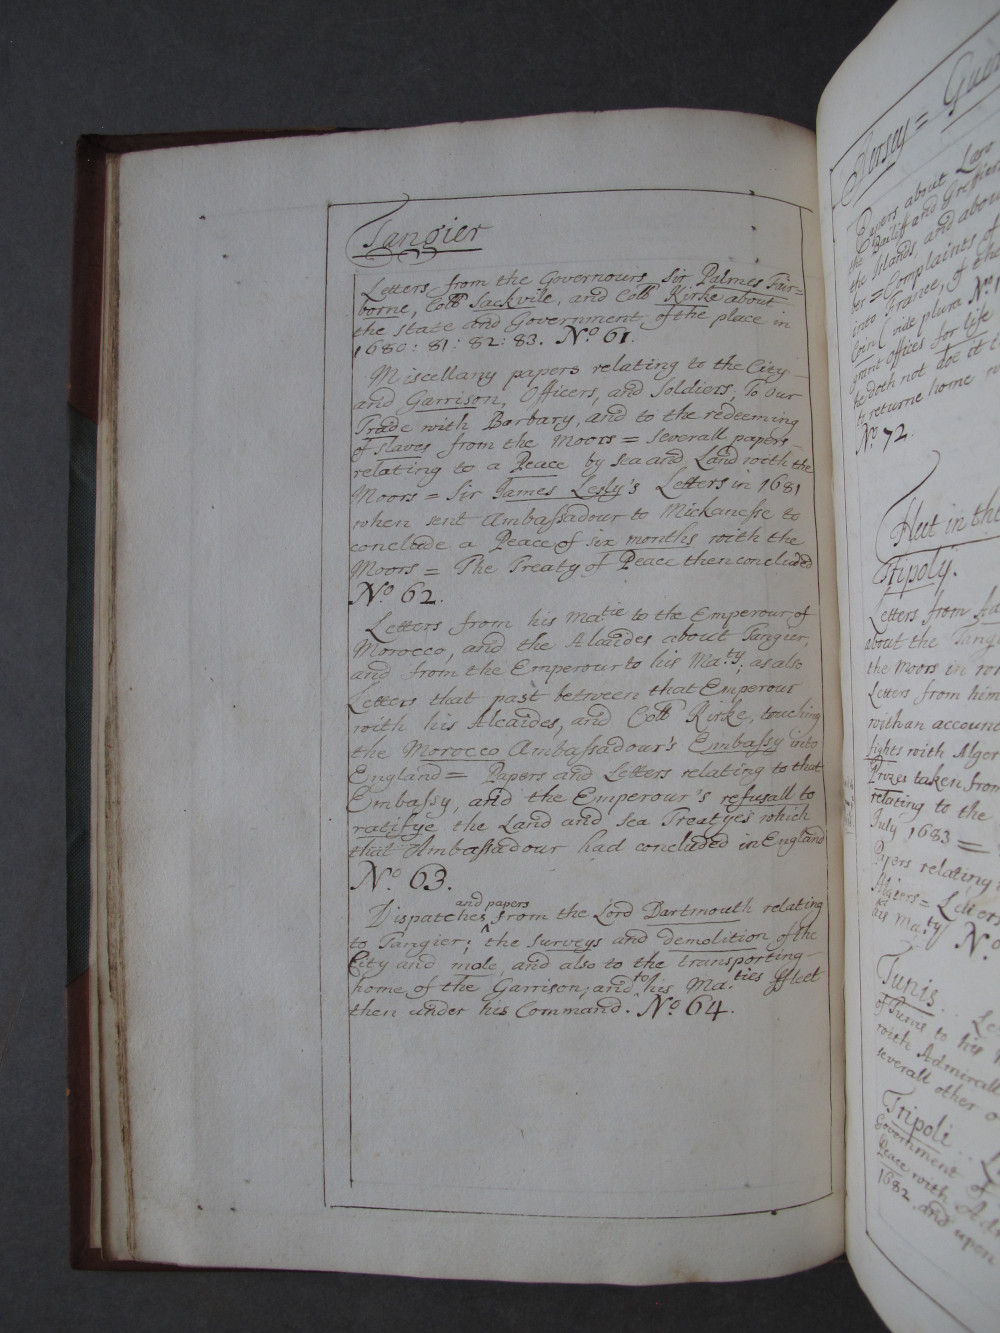 Tangier
Letters from the Governours, Sir Palmes Fair=
borne, Coll Sackvile, and Coll Kirke about
the state and Government of the place in
1680: 81: 82: 83. No 61.
Miscellany papers relating to the City
and Garrison, Officers, and Soldiers; To our
Trade with Barbary, and to the redeeming
of slaves from the Moors = severall papers
relating to a Peace by sea and Land with the
Moors = Sir James Lesly's Letters in 1681
when sent Ambassadour to Mickanesse to
conclude a Peace of six months with the
Moors = The Treaty of Peace then concluded
No 62.
Letters from his Matie to the Emperour of
Morocco, and the Alcaides about Tangier,
and from the Emperour to his Maty; as also
Letters that past between that Emperour
with his Alcaides, and Coll Kirke, touching
the Morocco Ambassadour's Embassy into
England = Papers and Letters relating to that
Embassy, and the Emperour's refusall to
ratifye the Land and sea Treatyes which
that Ambassadour had concluded in England
No 63.
and papers
Dispatches ^ from the Lord Dartmouth relating
to Tangier; the surveys and demolition of the
City and mole, and also to the transporting
home of the Garrison; and to his Maties ffleet
then under his Command. No 64.
Jersey =
Papers about Law
the Bailiff and Greffier
the Islands, and about
ber = Complaints of
into France, of the
Coin (vide plura No 1
grant offices for life
he doth not doe it t
to returne home
No 72.
Fleet in the
Tripoly.
Letters from Ad
about the Tang
the Moors in
Letters from him
with an account
fights with Alger
Prizes taken from
relating to the
July 1683 =
Papers relating
Algiers = Letters
his Maty No
Tunis . . Le
of Tunis to his
with Admirall
severall other
Tripoli . . L
Government of
Peace with Adm
1682. and upon